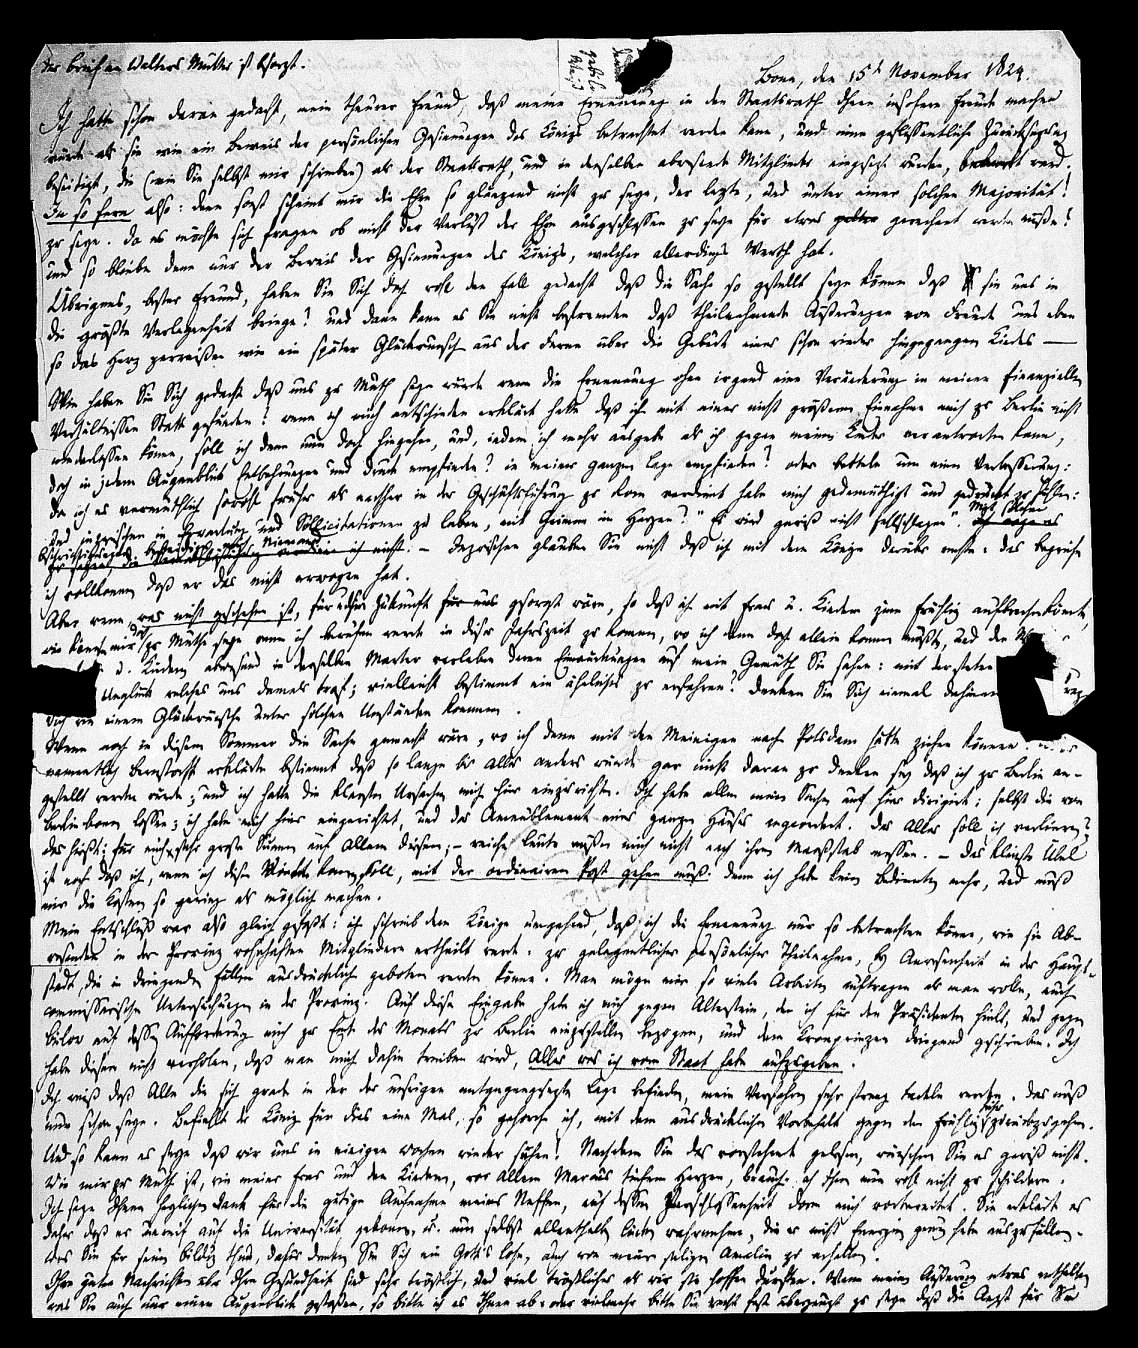 Der Brief an Walters Mutter ist besorgt.
Bonn, den 15t November 1824.
Ich hatte schon daran gedacht, mein theurer Freund, daß meine Ernennung in den Staatsrath Ihnen insofern Freude machen
würde als sie wie ein Beweis der persönlichen Gesinnungen des Königs betrachtet werden kann, und eine geflissentliche Zurücksetzung
beseitigt, die (wie Sie selbst mir schrieben) als der Staatsrath, und in denselben abwesende Mitglieder eingesetzt wurden, ward.
In so fern also: denn sonst scheint mir die Ehre so glänzend nicht zu seyn, der lezte, und unter einer solchen Majorität!
zu seyn. Da es möchte sich fragen ob nicht der Verlust der Ehre ausgeschlossen zu seyn für etwas gerechnet werden müßte!
und so bliebe denn nur der Beweis der Gesinnungen des Königs, welcher allerdings Werth hat.
Übrigens, bester Freund, haben Sie Sich doch wohl den Fall gedacht daß die Sache so gestellt seyn könne daß sie uns in
die größte Verlegenheit bringe? und dann kann es Sie nicht befremden daß theilnehmende Äußerungen von Freude uns eben
so das Herz zerreißen wie ein später Glückwunsch aus der Ferne über die Geburt eines schon wieder hingegangen Kindes —
Wie haben Sie Sich gedacht daß uns zu Muth seyn würde wenn die Ernennung ohne irgend eine Veränderung in meinen finanziellen
Verhältnissen Statt gefunden? wenn ich mich entschieden erklärt habe daß ich mit einer nicht größeren Einnahme mich zu Berlin nicht
niederlassen könne, soll ich denn nun doch hingehen, und, indem ich mehr ausgebe als ich gegen meine Kinder verantworten kann,
doch in jedem Augenblick Entbehrungen und Druck empfinden? in meiner ganzen Lage empfinden? oder betteln um eine Verbesserung:
da ich es vermuthlich sowohl früher als nachher in der Geschäftsführung zu Rom verdient habe mich gedemüthigt und gedrückt zu fühlen:
und inzwischen in Erwartung und Sollicitationen zu leben, mit Grimm im Herzen? "Es wird gewiß nicht fehlschlagen".
ich nicht. — Inzwischen glauben Sie nicht daß ich mit dem Könige darüber rechte: das begreife
ich vollkommen daß er das nicht erwogen hat.
Aber wenn, was nicht geschehen ist, für die Zukunft gesorgt wäre, so daß ich mit Frau u. Kindern zum Frühling aufbrechen könnte,
wie könnte mir zu Muthe seyn wenn ich berufen werde in dieser Jahrszeit zu kommen, wo ich denn doch allein kommen müßte, und den
u. Kindern abwesend in derselben Marter verleben deren Einwirkungen auf mein Gemüth Sie sahen: mit der steten
Unglück welches uns damals traf; vielleicht bestimmt ein ähnliches zu erfahren? Denken Sie Sich einmal dahinein
doch wie einem Glückwünsche unter solchen Umständen kommen.
Wenn noch in diesem Sommer die Sache gemacht wäre, wo ich denn mit den Meinigen nach Potsdam hätte ziehen können.
namentlich Bernstorff erklärte bestimmt daß so lange bis alles anders würde gar nicht daran zu denken sey daß ich zu Berlin an-
gestellt werden würde; und ich hatte die klarsten Ursachen mich hier einzurichten. Ich habe alle meine Sachen auf hier dirigirt: selbst die von
Berlin kommen lassen; ich habe mich hier eingerichtet, und das Ameublement eines ganzen Hauses angeordnet. Das Alles soll ich verlieren?
das heißt: für mich sehr große Summen auf allem diesem; — reiche Leute müßen mich nicht nach ihrem Maaßstab messen. — Das kleinste Übel
ist noch daß ich, wenn ich diesen Winter kommen soll, mit der ordinairen Post gehen muß: denn ich habe keinen Bedienten mehr, und muß
mir die Kosten so gering als möglich machen.
Mein Entschluß war also gleich gefaßt: ich schrieb dem Könige umgehend, daß ich die Ernennung nur so betrachten könne, wie sie Ab-
wesenden in der Provinz wohnhaften Mitgliedern ertheilt werde: zu gelegentlicher persönlicher Theilnahme, bey Anwesenheit in der Haupt-
stadt, die in dringenden Fällen ausdrücklich geboten werden könne. Man möge mir so viele Arbeiten auftragen als man wolle, auch
commissarische Untersuchungen in der Provinz. Auf diese Eingabe habe ich mich gegen Altenstein, den ich für den Präsidenten hielt, und gegen
Bülow auf dessen Aufforderung mich zu Ende des Monats zu Berlin einzustellen bezogen, und dem Kronprinzen dringend geschrieben. Ich
habe diesem nicht verholen, daß wenn man mich dahin treiben wird, Alles was ich vom Staat habe aufzugeben.
Ich weiß daß Alle die sich grade in der der unsrigen entgegengesezten Lage befinden, mein Verfahren sehr streng tadeln werden. Das muß
nun schon seyn. Befiehlt der König für dies eine Mal, so gehorche ich, mit dem ausdrücklichen Vorbehalt gegen den Frühling zurückzugehen.
Und so kann es seyn daß wir uns in einigen Wochen wieder sehen. Nachdem Sie das vorstehende gelesen, wünschen Sie es gewiß nicht.
Wie mir zu Muth ist, wie meiner Frau und den Kindern, vor allem Marcus tiefem Herzen, brauche ich Ihnen nun wohl nicht zu schildern.
Ich sage Ihnen herzlichen Dank für die gütige Aufnahme meines Neffen, auf dessen Verschlossenheit Sie mich vorbereitet. Sie erklärt es
daher daß er unreif auf die Universität gekommen, u. nun selbst allenthalben Lücken wahrnehme, die er nicht Energie genug habe auszufüllen.
was Sie für seine Bildung thun, dafür denken Sie Sich ein Gotts Lohn, auch von meiner seligen Amalie zu erhalten.
Ihre guten Nachrichten über Ihre Gesundheit sind sehr tröstlich, und viel tröstlicher als wir sie hoffen durften. Wenn meine Äußerung etwas enthalten
was Sie auch nur einen Augenblick gestoßen, so bitte ich es Ihnen ab: oder vielmehr bitte Sie recht fest überzeugt zu seyn daß die Angst für Sie